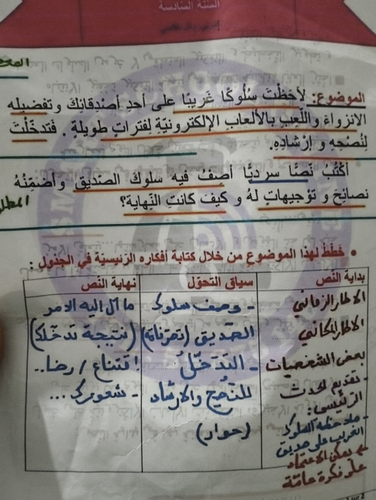 السنة السادسة
الموضوع: لاحظت سُلوكًا غريبًا على أحدِ أصدقائِكَ وتفضيلِهِ
الانزواءَ واللّعبِ بالألعابِ الإلكترونيّةِ لفتراتٍ طويلةٍ. فتدخّلتَ
لنُصحِهِ وإرشادِهِ.
أكتُبُ نصًّا سرديًّا أصفُ فيه سلوكَ الصّديقِ وأضمّنُهُ
نصائحَ وتوجيهاتٍ لهُ وكيف كانتِ النّهايةُ؟
• خطّط لهذا الموضوع من خلال كتابة أفكاره الرئيسيّة في الجدول:
بداية النص
سياق التحوّل
نهاية النص
الإطار الزماني
الإطار المكاني
بعض الشخصيات
- تقديم الحدث
الرئيسي:
ملاحظة السلوك
الغريب على صديق
يمكن الاعتماد
على فكرة عامّة
- وصف سلوك
الصديق (تصرفاته)
- التدخّل
للنّصح والإرشاد
(حوار)
ما آل إليه الأمر
(نتيجة تدخّلك)
اقتناع / رضا..
- شعورك ...